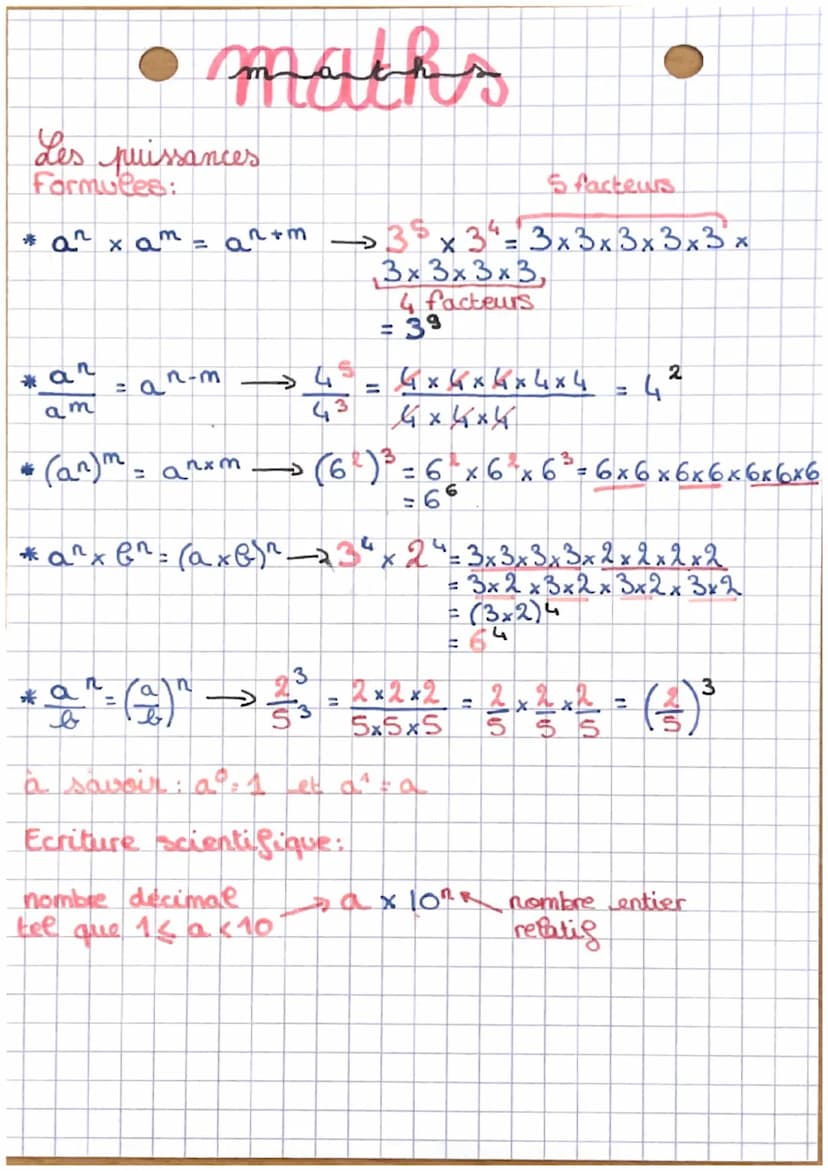 maths
maths
Les puissances
Formules:
5 facteurs
* aⁿ × aᵐ = aⁿ⁺ᵐ → 3⁵ × 3⁴ = 3×3×3×3×3 ×
3×3×3×3
4 facteurs
= 3⁹
* aⁿ/aᵐ = aⁿ⁻ᵐ → 4⁵/4³ = (4×4×4×4×4)/(4×4×4) = 4²
* (aⁿ)ᵐ = aⁿˣᵐ → (6²)³ = 6² × 6² × 6³ = 6×6 × 6×6 × 6×6×6
= 6⁶
* aⁿ × bⁿ = (a×b)ⁿ → 3⁴ × 2⁴ = 3×3×3×3×2×2×2×2
= 3×2 × 3×2 × 3×2 × 3×2
= (3×2)⁴
= 6⁴
* a/b ⁿ = (a/b)ⁿ → 2³/5³ = (2×2×2)/(5×5×5) = 2/5 × 2/5 × 2/5 = (2/5)³
à savoir : a⁰ = 1 et a¹ = a
Ecriture scientifique:
nombre décimal → a × 10ⁿ ← nombre entier
tel que 1 ≤ a < 10 relatif